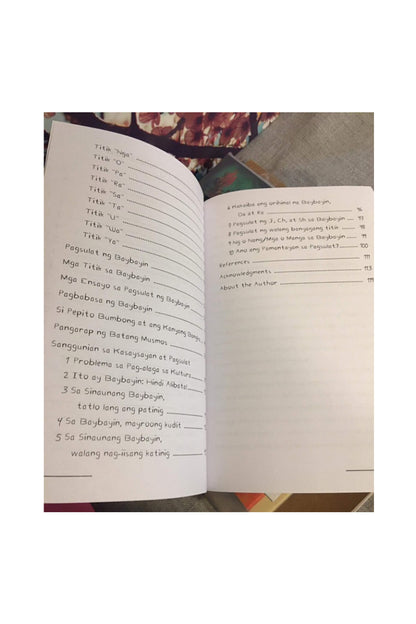 Titik "Nga"
Titik "O"
Titik "Pa"
Titik "Ra"
Titik "Sa"
Titik "Ta"
Titik "U"
Titik "Wa"
Titik "Ya"
Pagsulat ng Baybayin
Mga Titik sa Baybayin
Mga Ensayo sa Pagsulat ng Baybayin
Pagbabasa ng Baybayin
Si Pepito Bumbong at ang Kanyang
Pangarap ng Batang Musmos
Sanggunian sa Kasaysayan at Pagsulat
1 Problema sa Pag-alaga sa Kultura
2 Ito ay Baybayin; Hindi Alibata!
3 Sa Sinaunang Baybayin,
tatlo lang ang patinig
4 Sa Baybayin, mayroong kudlit
5 Sa Sinaunang Baybayin,
walang nag-iisang katinig
6 Makaiba ang orihinal na Baybayin,
Da at Ra 96
7 Pagsulat ng J, Ch, at Sh sa Baybayin 97
8 Pagsulat ng walang banyagang titik 98
9 Ng o Nang/Mga o Manga sa Baybayin 99
10 Ano ang Pamantayan sa Pagsulat? 100
References 111
Acknowledgments 113
About the Author